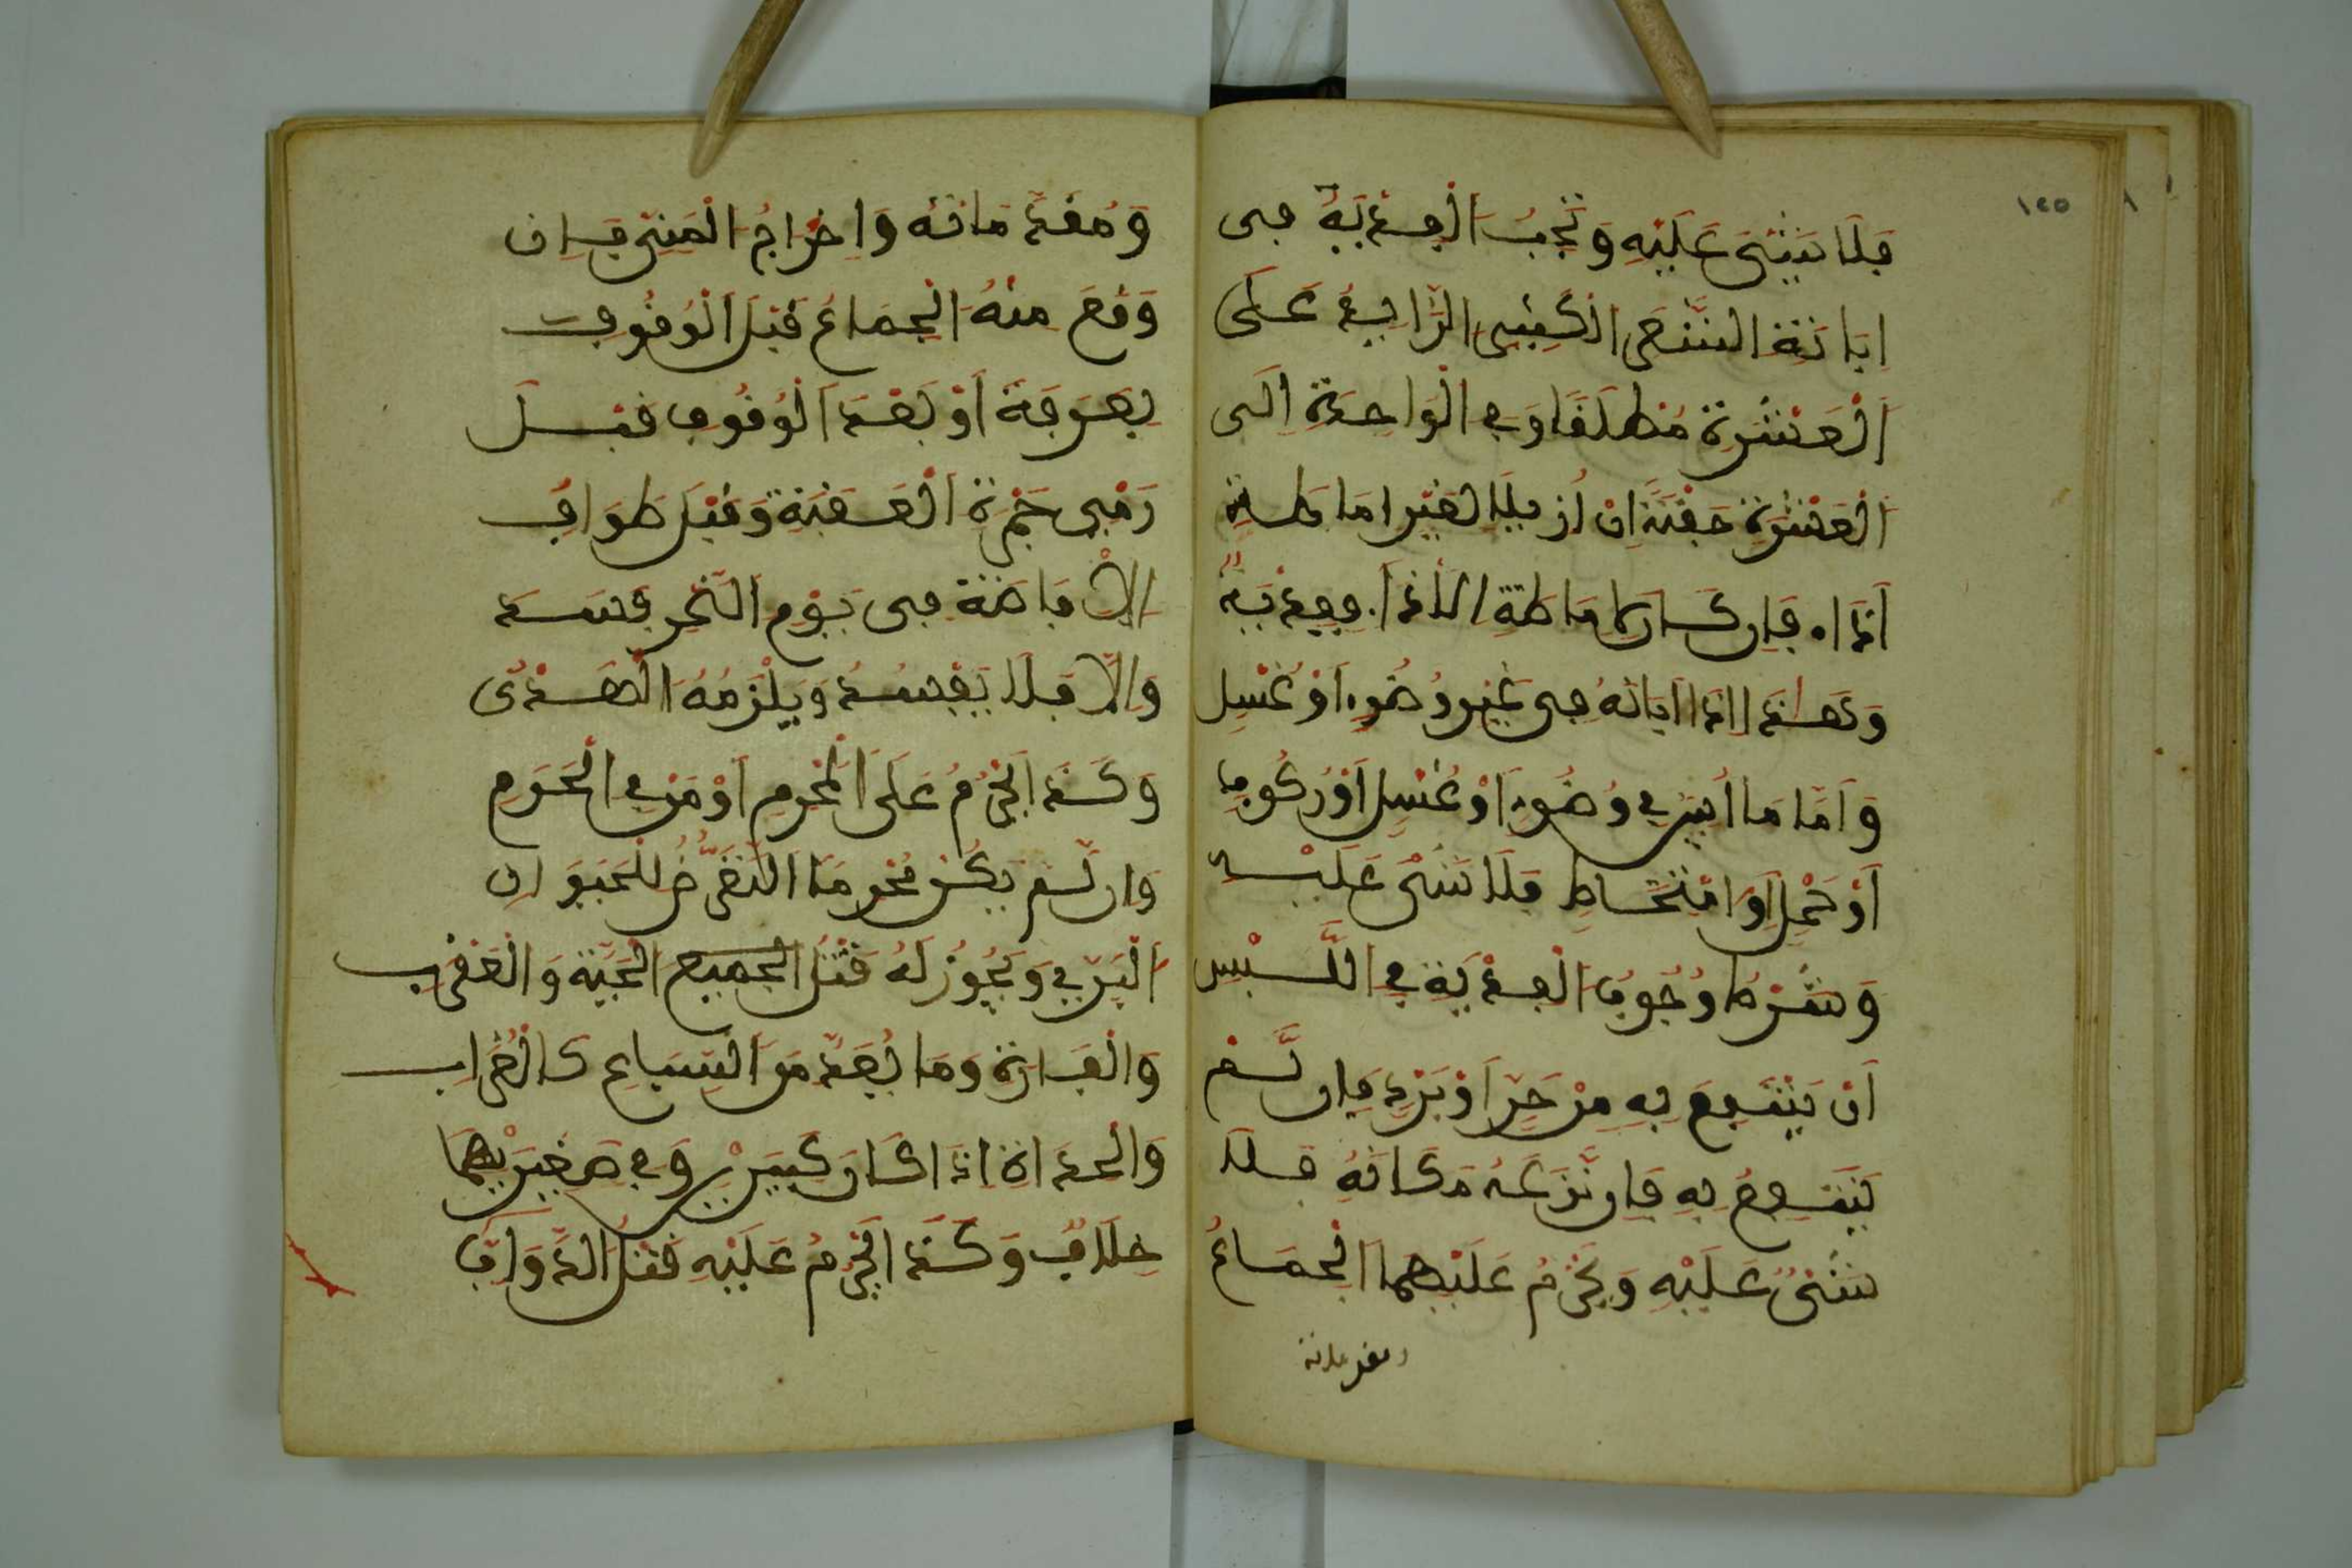 ١٢٥
فَلَا شَيْئَ عَلَيْهِ وَتَجِبُ الْفِدْيَةُ في
ابَانَةِ الشَّعَرِ الكَثِيرِ الزَّائِدِ عَلَى
الْعَشْرَةِ مُطْلَقًا وَفِي الْوَاحِدَةِ الَى
الْعَشْرَةِ حَفْنَة انْ أُزِيلَا لغَيْر امَاطَةِ
أذًا. فَإن كَان لإماطَةِ الأذَا. ففِدْيَةٌ
وَهَذا إذَا أبَانَهُ في غَيْرِ وُضُوءٍ أوْ غُسْلٍ
وَأمَّا مَا أبِينَ فِي وُضُوءٍ أوْ غُسْلٍ أوْ رُكُوبٍ
أوْ حَمْلٍ أوْ امْتِشَاطٍ فَلَا شَيْئَ عَلَيْهِ
وَشَرْطُ وُجُوبِ الْفِدْيَةِ فِي اللُّبْسِ
أنْ يَنْتَفِعَ بِهِ مِنْ حَرٍّ أوْ بَرْدٍ فَإن لَّمْ
يَنْتَفِعْ بِهِ فَإن نَّزَعَهُ مَكَانَهُ فَلَا
شَيْءٌ عَلَيْهِ وَيَحْرُمُ عَلَيْهِمَا الْجِمَاعُ
ومقدماته
وَمُقَدِّمَاتُه وَإخْرَاجُ الْمَنِيِّ فَإن
وَقَعَ مِنْهُ الْجِمَاعُ قَبْلَ الْوُقُوفِ
بِعَرَفَةَ أوْ بَعْدَ الْوُقُوفِ قبْلَ
رَمْيِ جَمْرَةِ الْعَقَبَةِ وَقَبْلَ طَوَافِ
الإفَاضَةِ في يَوْمِ النَّحْرِ فَسَدَ
وَالَّا فَلَا يَفْسُدُ وَيَلْزَمُهُ الْهَدْيُ
وَكَذَا يَحْرُمُ عَلَى الْمُحْرِمِ أوْ مَنْ فِي الْحَرَمِ
وَان لَّمْ يَكُنْ مُحْرِمًا التَّعَرُّضُ لِلْحَيَوَانِ
الْبَرِّي وَيَجُوزُ لَهُ قَتْلُ الجميع الْحَيَّةِ وَالْعَقْرَبِ
وَالْفَارَةِ وَمَا يُعَدُّ مِنَ السِّبَاعِ كَالْغُرَابِ
وَالْحِدَاةِ إذَا كَانَ كَبِيرَيْنِ وَفِي صَغِيرَيْهِمَا
خِلَافٌ وَكَذَا يَحْرُمُ عَلَيْهِ قَتْلُ الدَّوَابِّ